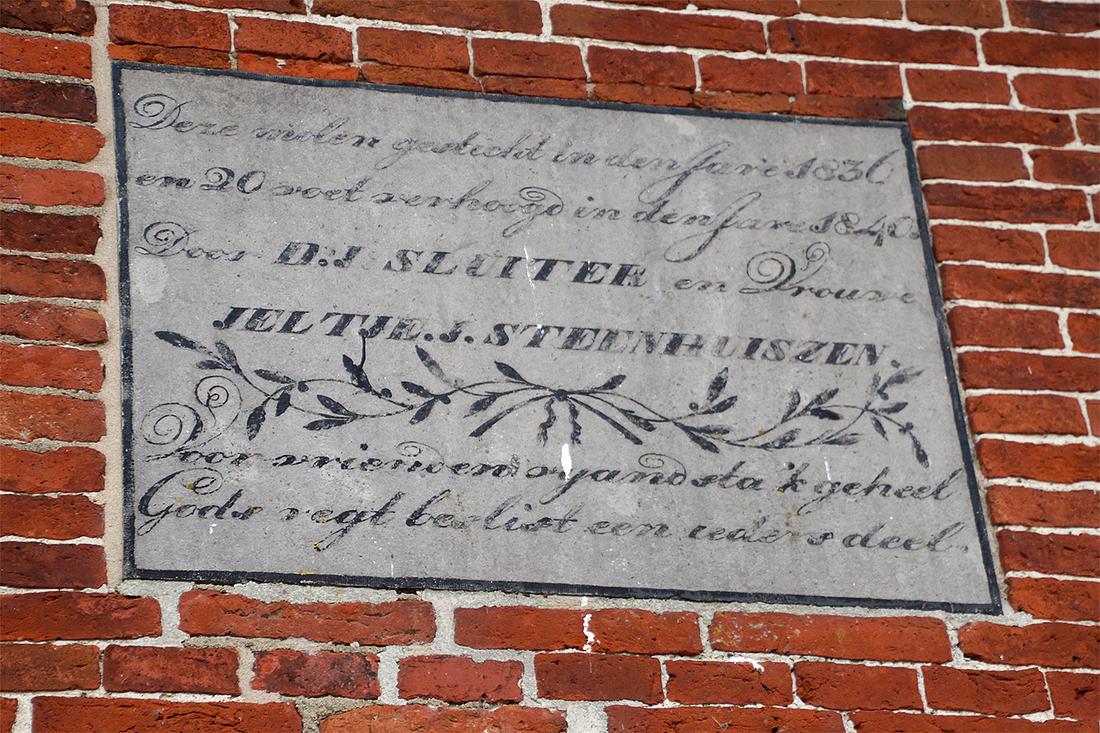 Deze molen gesticht in den Jare 1836
en 20 voet verhoogd in den Jare 1840.
Door D:J SLUITER en Vrouwe
JELTJE.J. STEENHUISZEN.
Voor vriend en vyand sta 'k geheel
Gods regt beslist een ieders deel.